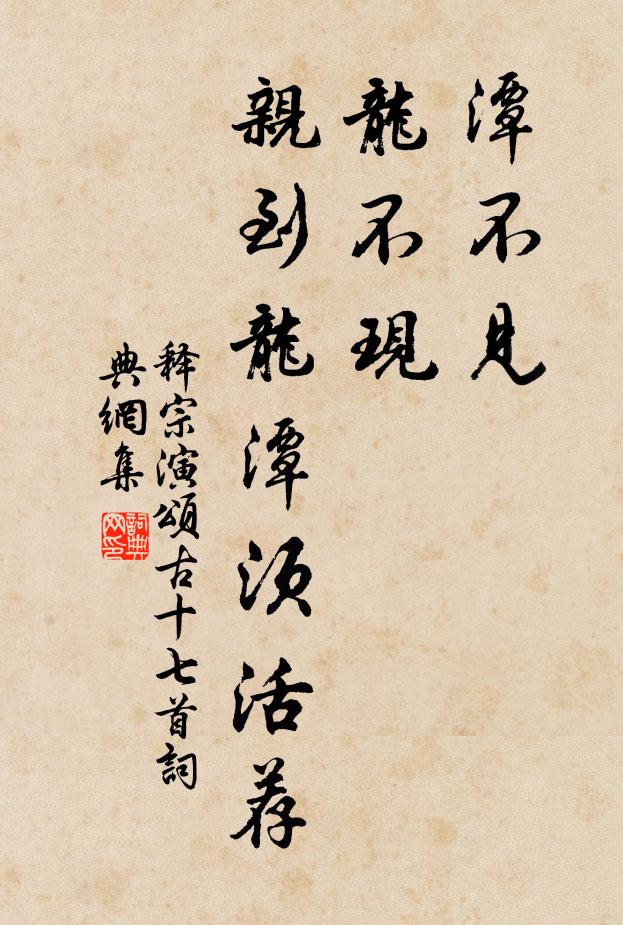 潭不見
龍不現
親到龍潭須活荐
释宗演頌古十七首詞
典網集
詞典
网印